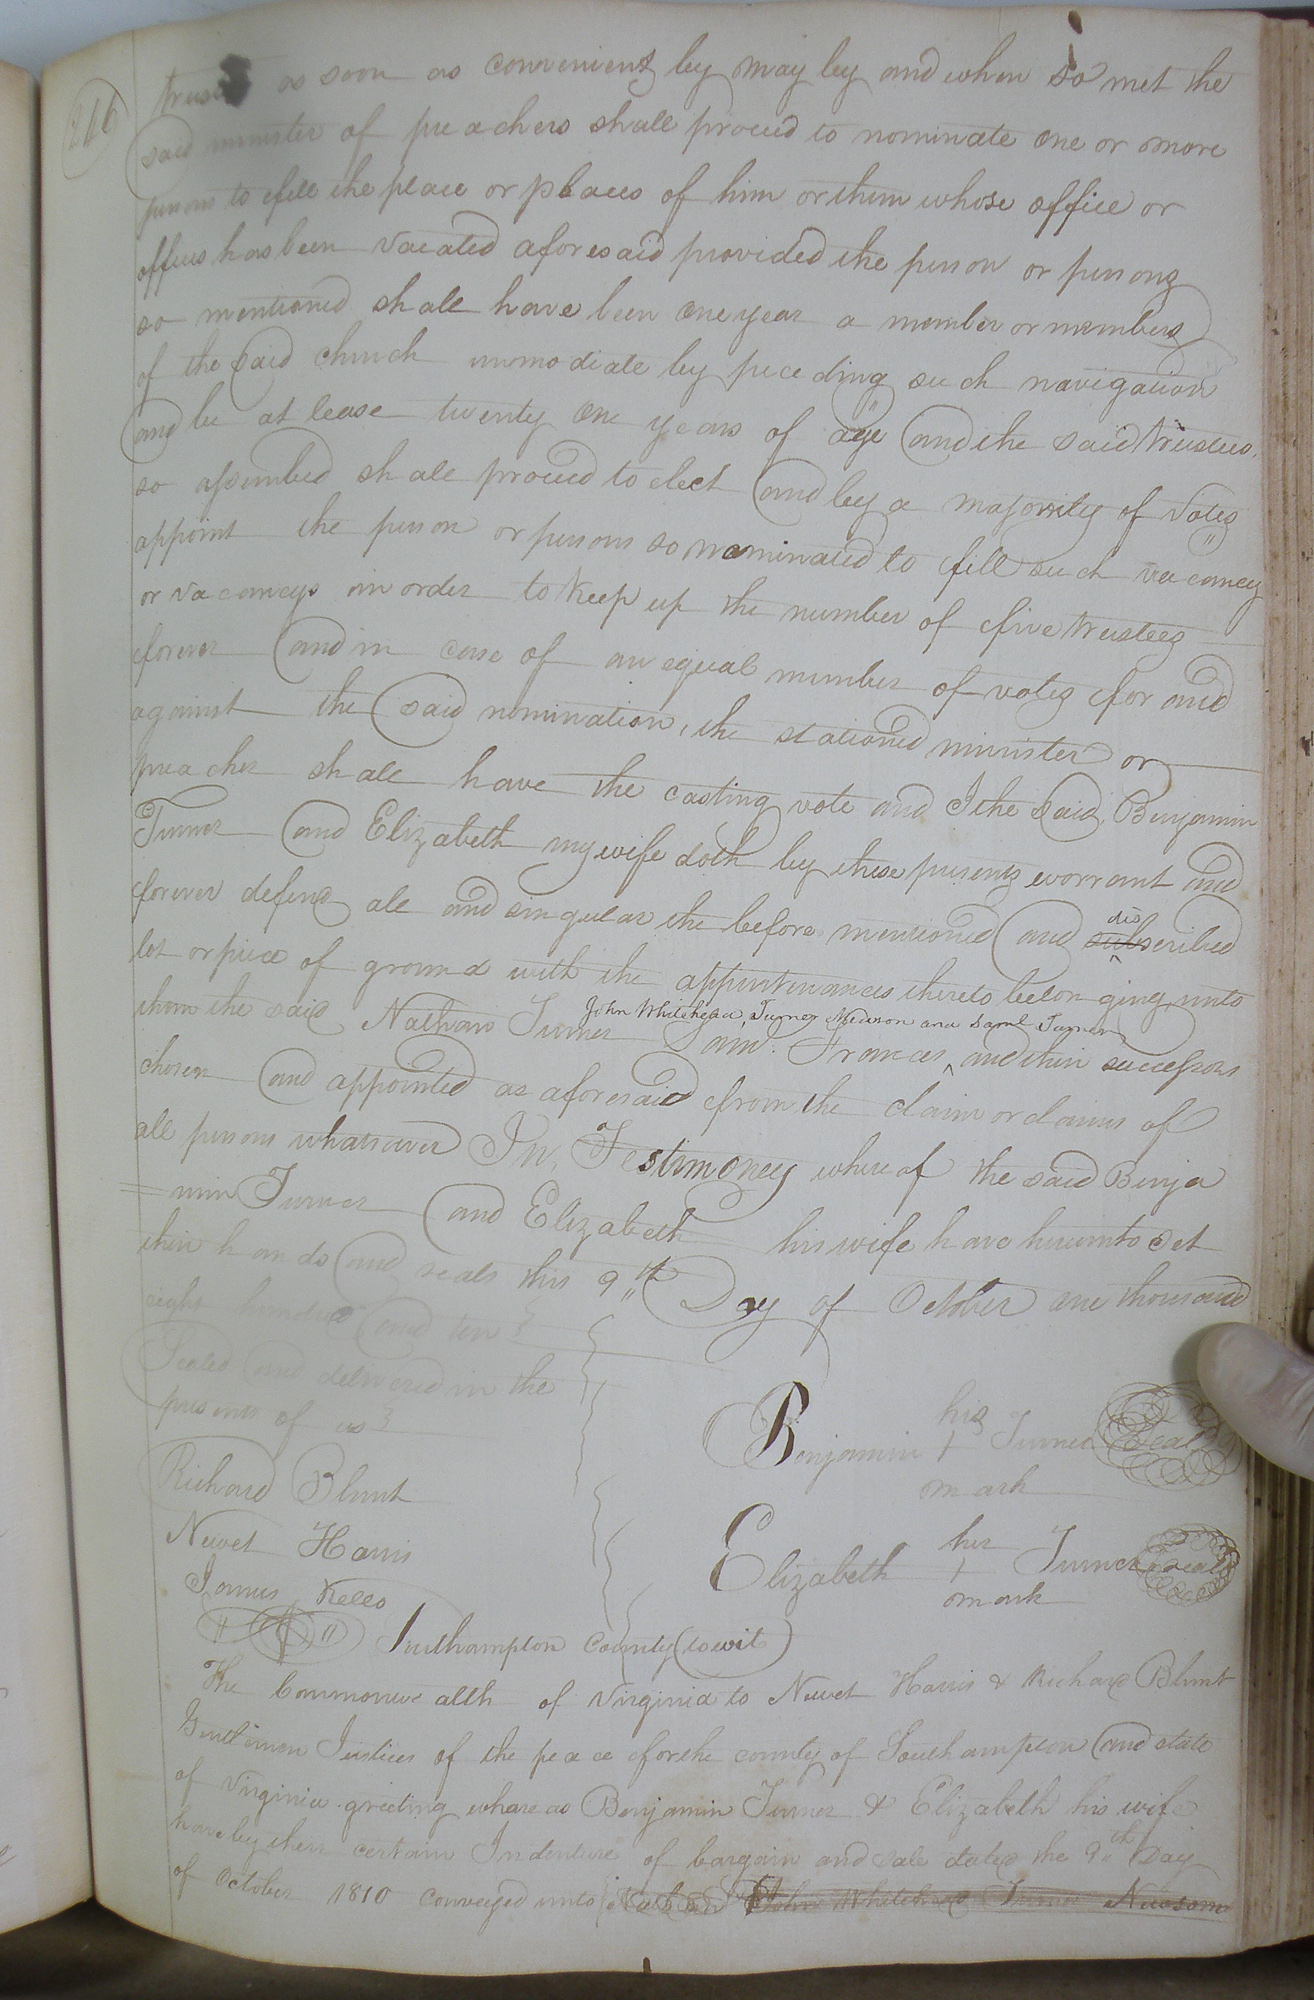 216
trus as soon as convenient ly may ly and when so met the
said minister of preachers shall proceed to nominate one or more
persons to fill the place or places of him or them whose office or
offices has been vacated aforesaid provided the person or persons
so mentioned shall have been one year a member or members
of the said church immediate ly preceding such navigation
and be at lease twenty one years of age and the said trustees,
so assembled shall proceed to elect and by a majority of Votes
appoint the person or persons so nominated to fill such vacancy
or vacancys in order to keep up the number of five trustees
forever and in case of an equal number of votes for and
against the said nomination, the stationed minister or
preacher shall have the casting vote and I the said Benjamin
Turner and Elizabeth my wife doth by these presents worrant and
forever defend all and singular the before mentioned and subscribed
dis
lot or piece of ground with the appurtenances thereto belonging unto
them the said Nathan Turner Saml. Francis, and their successors
John Whitehead, Turner Newsom and Saml Turner
chosen and appointed as aforesaid from the claim or claims of
all persons whatsoever In Testimoney whereof the said Benja
=min Turner and Elizabeth his wife have hereunto set
their hands and seals this 9th Day of October one thousand
eight hundred and ten
Sealed and delivered in the
presence of us
Benjamin his + mark Turner Seal
Richard Blunt
Newet Harris
Elizabeth her + mark Turner Seal
James Kello
Southampton County (to wit)
The Commonwealth of Virginia to Newet Harris & Richard Blunt
Gentlemen Justices of the peace for the county of Southampton and state
of Virginia greeting whareas Benjamin Turner & Elizabeth his wife
have by their certain Indenture of bargain and sale dated the 9th Day
of October 1810 conveyed unto Nathan John Whitehead Turner Newsom